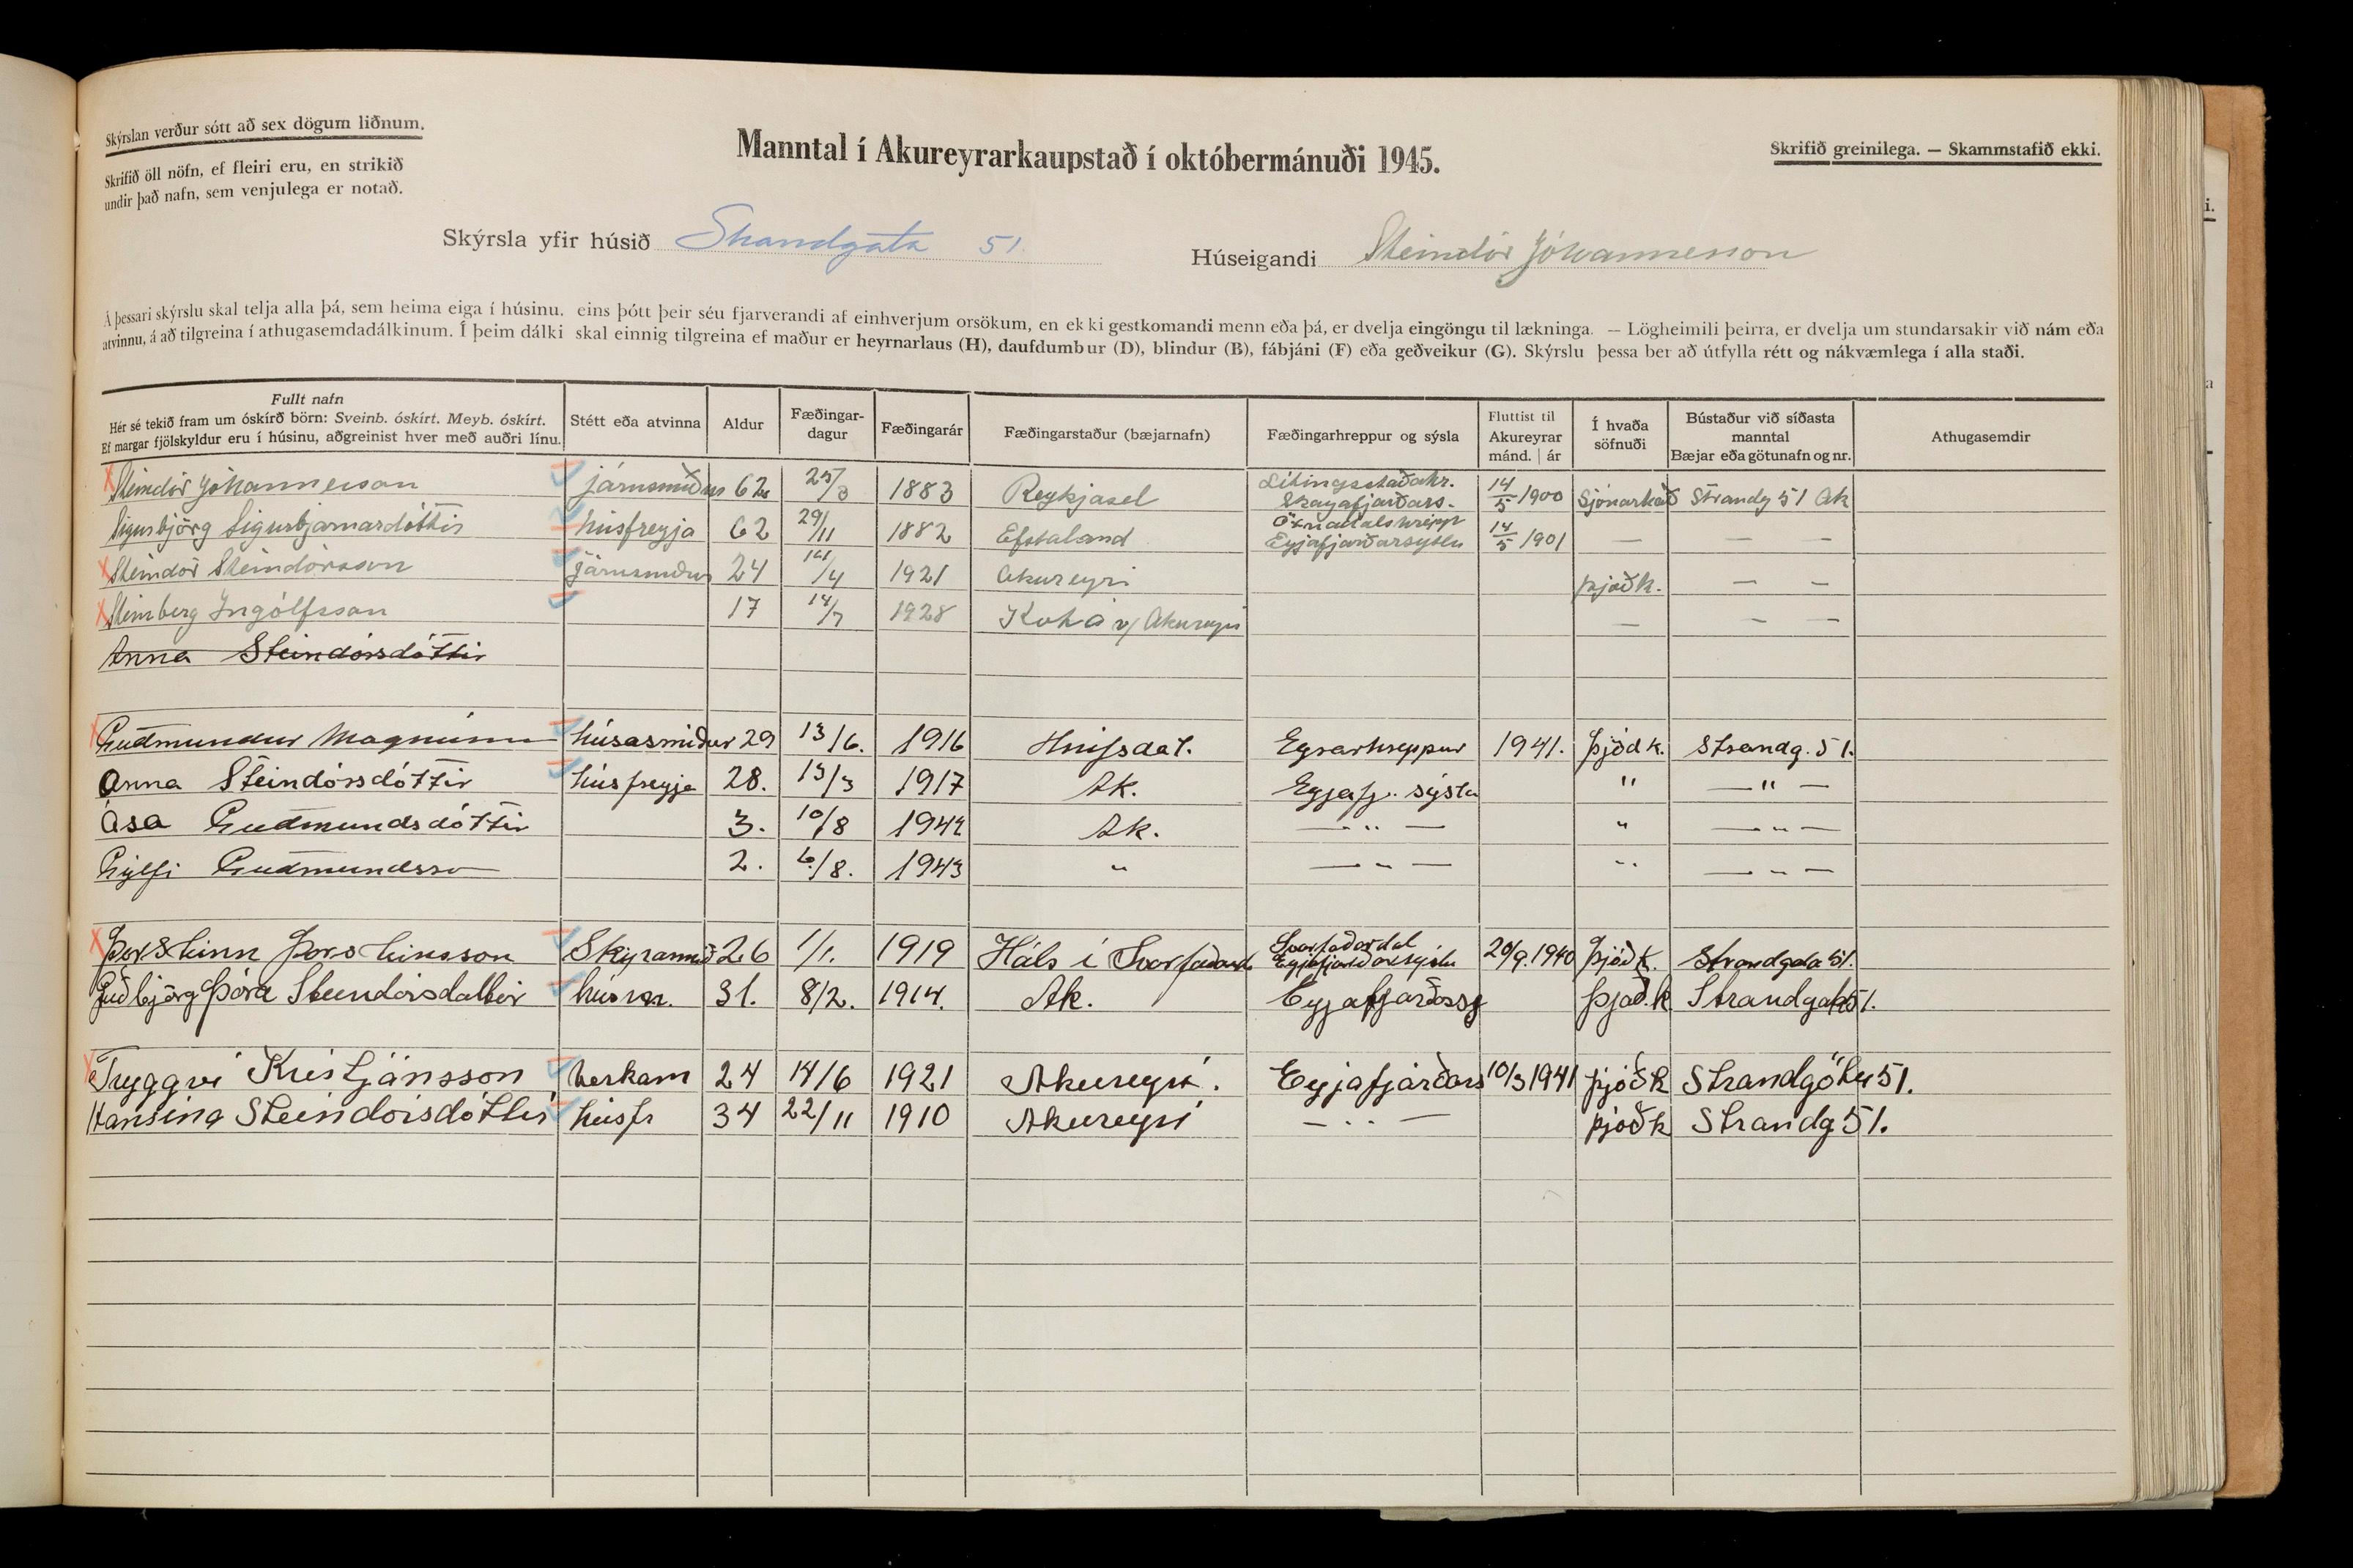 Skýrslan verður sótt að sex dögum liðnum.
Skrifið öll nöfn, ef fleiri eru, en strikið
undir það nafn, sem venjulega er notað.
Manntal í Akureyrarkaupstað í októbermánuði 1945.
Skrifið greinilega. — Skammstafið ekki.
Skýrsla yfir húsið Strandgata 51.
Húseigandi Steindór Jóhannesson
Á þessari skýrslu skal telja alla þá, sem heima eiga í húsinu, eins þótt þeir séu fjarverandi af einhverjum orsökum, en ekki gestkomandi menn eða þá, er dvelja eingöngu til lækninga. — Lögheimili þeirra, er dvelja um stundarsakir við nám eða
atvinnu, á að tilgreina í athugasemdadálkinum. Í þeim dálki skal einnig tilgreina ef maður er heyrnarlaus (H), daufdumbur (D), blindur (B), fábjáni (F) eða geðveikur (G). Skýrslu þessa ber að útfylla rétt og nákvæmlega í alla staði.
Fullt nafn
Hér sé tekið fram um óskírð börn: Sveinb. óskírt. Meyb. óskírt.
Ef margar fjölskyldur eru í húsinu, aðgreinist hver með auðri línu.
Stétt eða atvinna
Aldur
Fæðingar-
dagur
Fæðingarár
Fæðingarstaður (bæjarnafn)
Fæðingarhreppur og sýsla
Fluttist til
Akureyrar
mánd. | ár
Í hvaða
söfnuði
Bústaður við síðasta
manntal
Bæjar eða götunafn og nr.
Athugasemdir
Steindór Jóhannesson járnsmiður 62 25/3 1883 Reykjasel Lítingsstaðahr. Skagafjarðars. 14/5 1900 Sjónarhæð Strandg 51 Ak
Sigurbjörg Sigurbjarnardóttir húsfreyja 62 29/11 1882 Efstaland Öxnadalshrepp Eyjafjarðarsýslu 14/5 1901 — — —
Steindór Steindórsson járnsmiður 24 /4 1921 Akureyri þjóðk. — —
Steinberg Ingólfsson 17 14/7 1928 v/ Akureyri — — —
Anna Steindórsdóttir
Guðmundur Magnúss húsasmiður 29 13/6. 1916 Hnífsdal. Eyrarhreppur 1941. þjóðk. Strandg. 51.
Anna Steindórsdóttir húsfreyja 28. 13/3 1917 Ak. Eyjafj. sýslu " — " —
Ása Guðmundsdóttir 3. 10/8 1942 Ak. — " — " — " —
Gylfi Guðmundsso 2. 6./8. 1943 " — " — " — " —
Þorsteinn Þorsteinsson Skipasmið 26 1/1. 1919 Háls í Svarfaðard Svarfaðardal Eyjafjarðarsýslu 20/9. 1940 Þjóðk. Strandgata 51.
Guðbjörg Þóra Steindórsdottir húsm. 31. 8/2. 1914. Ak. Eyjafjarðarsy þjoð.k Strandgata 51.
Tryggvi Kristjánsson verkam 24 14/6 1921 Akureyri. Eyjafjarðars 10/3 1941 þjóðk Strandgötu 51.
Hansína Steindórsdóttir húsfr 34 22/11 1910 Akureyri — " — þjóðk Strandg 51.